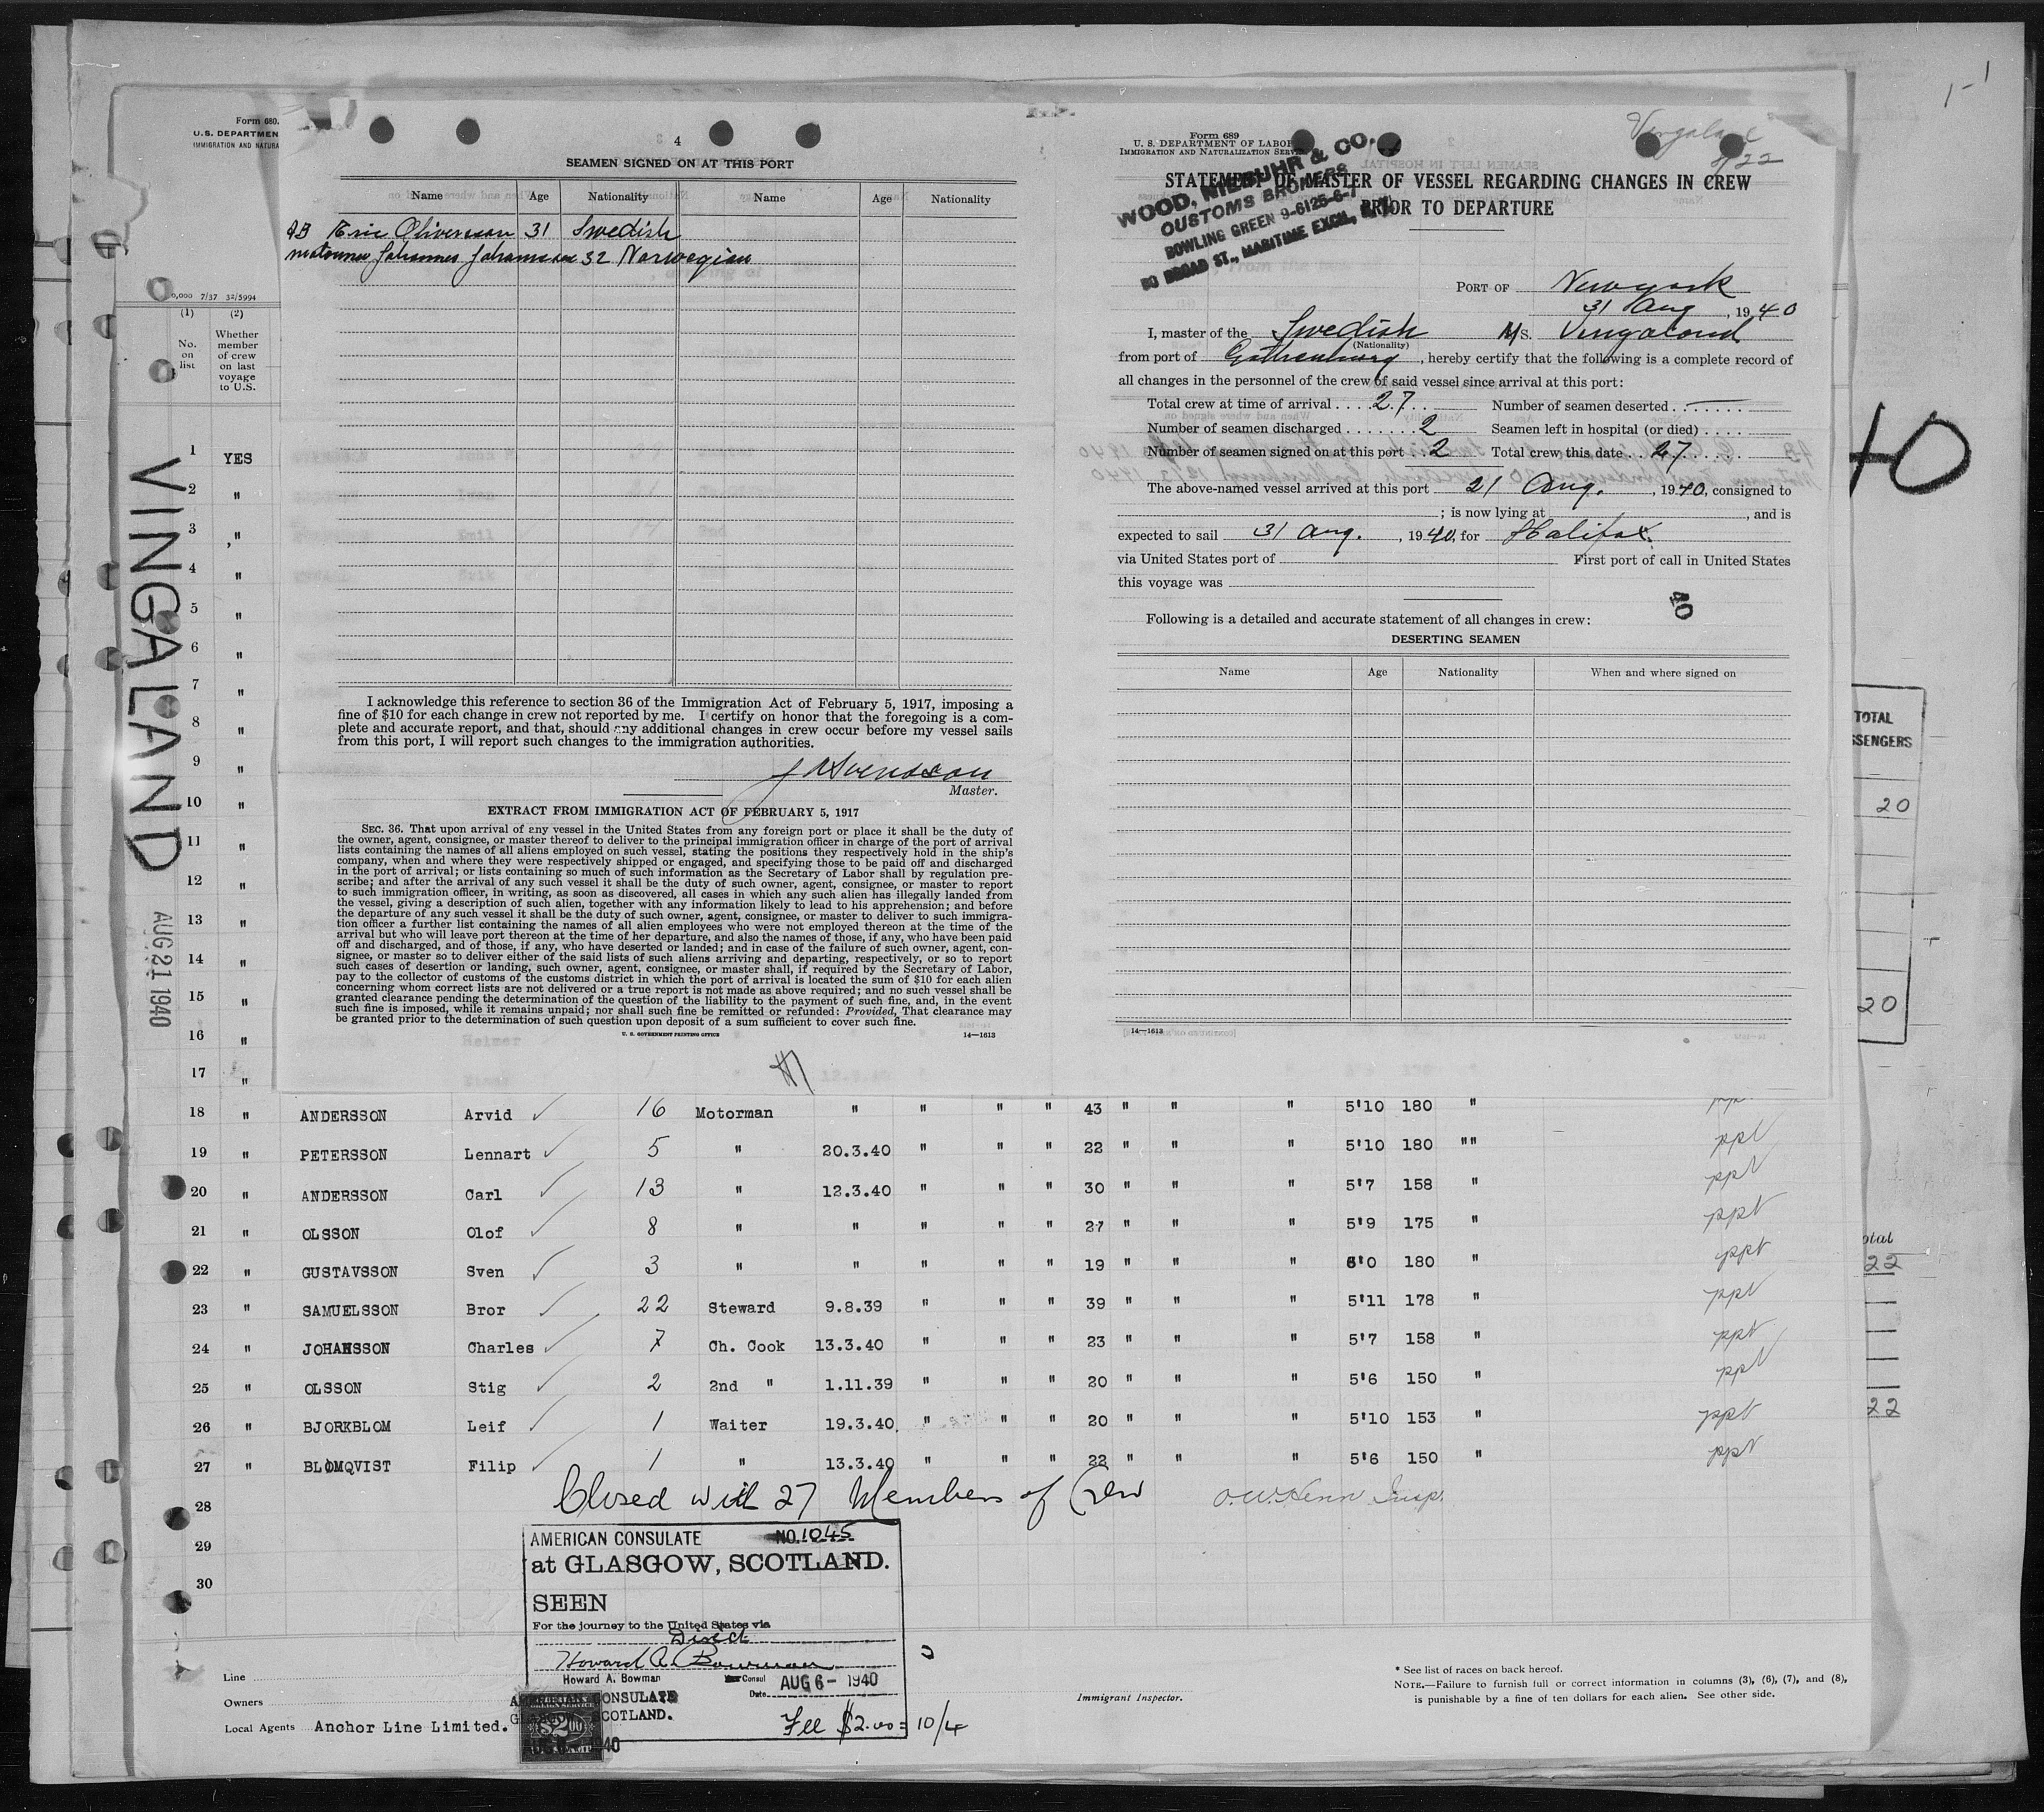 Form 680.
U.S. DEPARTMEN
IMMIGRATION AND NATURA
0,000 7/37 32/5994
(1) (2)
No. on list
Whether member of crew on last voyage to U.S.
VINGALAND
AUG 21 1940
1 YES
2 "
3 "
4 "
5 "
6 "
7 "
8 "
9 "
10 "
11 "
12 "
13 "
14 "
15 "
16 "
17 "
4
SEAMEN SIGNED ON AT THIS PORT
Name Age Nationality Name Age Nationality
AB Eric Oliversson 31 Swedish
Johannes 32 Norwegian
I acknowledge this reference to section 36 of the Immigration Act of February 5, 1917, imposing a
fine of $10 for each change in crew not reported by me. I certify on honor that the foregoing is a com-
plete and accurate report, and that, should any additional changes in crew occur before my vessel sails
from this port, I will report such changes to the immigration authorities.
Master.
EXTRACT FROM IMMIGRATION ACT OF FEBRUARY 5, 1917
SEC. 36. That upon arrival of any vessel in the United States from any foreign port or place it shall be the duty of
the owner, agent, consignee, or master thereof to deliver to the principal immigration officer in charge of the port of arrival
lists containing the names of all aliens employed on such vessel, stating the positions they respectively hold in the ship's
company, when and where they were respectively shipped or engaged, and specifying those to be paid off and discharged
in the port of arrival; or lists containing so much of such information as the Secretary of Labor shall by regulation pre-
scribe; and after the arrival of any such vessel it shall be the duty of such owner, agent, consignee, or master to report
to such immigration officer, in writing, as soon as discovered, all cases in which any such alien has illegally landed from
the vessel, giving a description of such alien, together with any information likely to lead to his apprehension; and before
the departure of any such vessel it shall be the duty of such owner, agent, consignee, or master to deliver to such immigra-
tion officer a further list containing the names of all alien employees who were not employed thereon at the time of the
arrival but who will leave port thereon at the time of her departure, and also the names of those, if any, who have been paid
off and discharged, and of those, if any, who have deserted or landed; and in case of the failure of such owner, agent, con-
signee, or master so to deliver either of the said lists of such aliens arriving and departing, respectively, or so to report
such cases of desertion or landing, such owner, agent, consignee, or master shall, if required by the Secretary of Labor,
pay to the collector of customs of the customs district in which the port of arrival is located the sum of $10 for each alien
concerning whom correct lists are not delivered or a true report is not made as above required; and no such vessel shall be
granted clearance pending the determination of the question of the liability to the payment of such fine, and, in the event
such fine is imposed, while it remains unpaid; nor shall such fine be remitted or refunded: Provided, That clearance may
be granted prior to the determination of such question upon deposit of a sum sufficient to cover such fine.
U. S. GOVERNMENT PRINTING OFFICE 14—1613
#1
Form 689
U. S. DEPARTMENT OF LABOR
IMMIGRATION AND NATURALIZATION SERVICE
WOOD, NIEBUHR & CO.
CUSTOMS BROKERS
BOWLING GREEN 9-6125-6-7
80 BROAD ST., MARITIME EXCH., N.Y.
STATEMENT OF MASTER OF VESSEL REGARDING CHANGES IN CREW
PRIOR TO DEPARTURE
PORT OF New york
31 Aug, 1940
I, master of the Swedish M/S. Vingaland
(Nationality)
from port of Gothenburg, hereby certify that the following is a complete record of
all changes in the personnel of the crew of said vessel since arrival at this port:
Total crew at time of arrival .... 27 Number of seamen deserted ....... —
Number of seamen discharged ....... 2 Seamen left in hospital (or died) ....
Number of seamen signed on at this port 2 Total crew this date .. 27
The above-named vessel arrived at this port 21 Aug., 1940, consigned to
; is now lying at , and is
expected to sail 31 Aug., 1940, for Halifax.
via United States port of First port of call in United States
this voyage was
40
Following is a detailed and accurate statement of all changes in crew:
DESERTING SEAMEN
Name Age Nationality When and where signed on
14—1613
TOTAL
SSENGERS
20
20
otal
22
22
18 " ANDERSSON Arvid 16 Motorman " " " " 43 " " " 5'10 180 "
19 " PETERSSON Lennart 5 " 20.3.40 " " " 22 " " " 5'10 180 "" ppt
20 " ANDERSSON Carl 13 " 12.3.40 " " " 30 " " " 5'7 158 " ppt
21 " OLSSON Olof 8 " " " " " 27 " " " 5'9 175 " ppt
22 " GUSTAVSSON Sven 3 " " " " " 19 " " " 6'0 180 " ppt
23 " SAMUELSSON Bror 22 Steward 9.8.39 " " " 39 " " " 5'11 178 " ppt
24 " JOHANSSON Charles 7 Ch. Cook 13.3.40 " " " 23 " " " 5'7 158 " ppt
25 " OLSSON Stig 2 2nd " 1.11.39 " " " 20 " " " 5'6 150 " ppt
26 " BJORKBLOM Leif 1 Waiter 19.3.40 " " " 20 " " " 5'10 153 " ppt
27 " BLOMQVIST Filip 1 " 13.3.40 " " " 22 " " " 5'6 150 " ppt
28 Closed with 27 Members of Crew Insp.
29
30
AMERICAN CONSULATE NO. 1045
at GLASGOW, SCOTLAND.
SEEN
For the journey to the United States via
Direct
Howard A. Bowman
Howard A. Bowman Consul
Date AUG 6 - 1940
AMERICAN CONSULATE
GLASGOW, SCOTLAND.
$2.00
Fee $2.00 = 10/4
Line
Owners
Local Agents Anchor Line Limited.
Immigrant Inspector.
* See list of races on back hereof.
NOTE.—Failure to furnish full or correct information in columns (3), (6), (7), and (8),
is punishable by a fine of ten dollars for each alien. See other side.